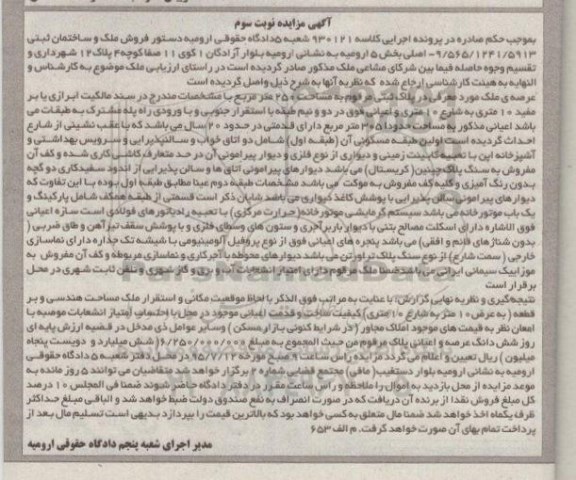 آگهی مزایده نوبت سوم
بموجب حکم صادره در پرونده اجرایی کلاسه ۹۳۰۱۲۱ شعبه ۵دادگاه حقوقی ارومیه دستور فروش ملک و ساختمان ثبتی
۹/۵۶۵/۱۲۴۱/۵۹۱۳- اصلی بخش ۵ ارومیه به نشانی ارومیه بلوار آزادگان ۱ کوی ۱۱ صفا کوچه۴ پلاک ۱۲ شهرداری و
تقسیم وجوه حاصله فیما بین شرکای مشاعی ملک مذکور صادر گردیده است در راستای ارزیابی ملک موضوع به کارشناس و
النهایه به هیئت کارشناسی ارجاع شده که نظریه آنها به شرح ذیل واصل گردیده است
عرصه ی ملک مورد معرفی در پلاک ثبتی مرقوم به مساحت ۲۵۰ متر مربع با مشخصات مندرج در سند مالکیت ابرازی با بر
مفید ۱۰ متری به شارع ۱۰ متری و اعیانی فوق در دو و نیم طبقه با استقرار جنوبی و با ورودی راه پله مشترک به طبقات می
باشد اعیانی مذکور به مساحت حدودا ۳۰۵ متر مربع دارای قدمتی در حدود ۲۰ سال می باشد که با عقب نشینی از شارع
احداث گردیده است اولین طبقه مسکونی آن (طبقه اول) شامل دو اتاق خواب و سالنپذیرایی و سرویس بهداشتی و
آشپزخانه اپن با تعبیه کابینت زمینی و دیواری از نوع فلزی و دیوار پیرامونی آن در حد متعارف کاشی کاری شده و کف آن
مفروش به سنگ پلاک چینین (کریستال) می باشد دیوارهای پیرامونی اتاق ها و سالن پذیرایی از اندود سفیدکاری دو گچه
بدون رنگ آمیزی و کلیه کف مفروش به موکت می باشد مشخصات طبقه دوم عینا مطابق طبقه اول بوده با این تفاوت که
دیوارهای پیرامونی سالن پذیرایی با پوشش کاغذ دیواری می باشد شایان ذکر است قسمتی از طبقه همکف شامل پارکینگ و
یک باب موتورخانه می باشد سیستم گرمایشی موتورخانه(حرارت مرکزی) با تعبیه رادیاتورهای فولادی است سازه اعیانی
فوق الاشاره دارای اسکلت مصالح بنایی با دیوار باربر آجری و ستون های وسطی فلزی و با پوشش سقف تیرآهن و طاق ضربی (
بدون شناژهای قائم و افقی) می باشد پنجره های اعیانی فوق از نوع پروفیل آلومینیومی با شیشه تک جداره دارای نماسازی
خارجی (سمت شارع) از نوع سنگ پلاک تراورتن می باشد دیوارهای محوطه با آجرکاری و نماسازی مربوطه و کف آن مفروش به
موزاییک سیمانی ایرانی می باشدضمنا ملک مرقوم دارای امتیاز انشعابات آب و برق و گاز شهری و تلفن ثابت شهری در محل
برقرار است
نتیجه‌گیری و نظریه نهایی گزارش: با عنایت به مراتب فوق الذکر با لحاظ موقعیت مکانی و استقرار ملک مساحت هندسی و بر
قطعه (به عرض ۱۰ متر به شارع ۱۰ متری) کیفیت ساخت و قدمت اعیانی موجود در محل با احتساب امتیاز انشعابات موصبه با
امعان نظر به قیمت های موجود املاک مجاور (در شرایط کنونی بازار مسکن) و سایر عوامل ذی مدخل در قضیه ارزش پایه ای
روز شش دانگ عرصه و اعیانی پلاک مرقوم من حیث المجموع به مبلغ ۶/۲۵۰/۰۰۰/۰۰۰ریال (شش میلیارد و دویست پنجاه
میلیون) ریال تعیین و اعلام می گردد مزایده راس ساعت ۹ صبح مورخه ۹۵/۷/۱۲ در محل دفتر شعبه ۵ دادگاه حقوقی
ارومیه به نشانی ارومیه بلوار دستغیب( مافی) مجتمع قضایی شماره ۲ برگزار خواهد شد متقاضیان می توانند ۵ روز مانده به
موعد مزایده از محل بازدید به اموال را ملاحظه و راس ساعت مقرر در دفتر دادگاه حاضر شوند ضمنا فی المجلس ۱۰ درصد
کل مبلغ فروش نقدا از برنده آن دریافت که در صورت انصراف به نفع صندوق دولت ضبط خواهد شد و الباقی مبلغ حداکثر
ظرف یکماه اخذ خواهد شد ضمنا مال متعلق به کسی خواهد بود که بالاترین قیمت را بپردازد بدیهی است تسلیم مال بعد از
پرداخت تمام بهای آن صورت خواهد گرفت. م الف ۶۵۳
مدیر اجرای شعبه پنجم دادگاه حقوقی ارومیه